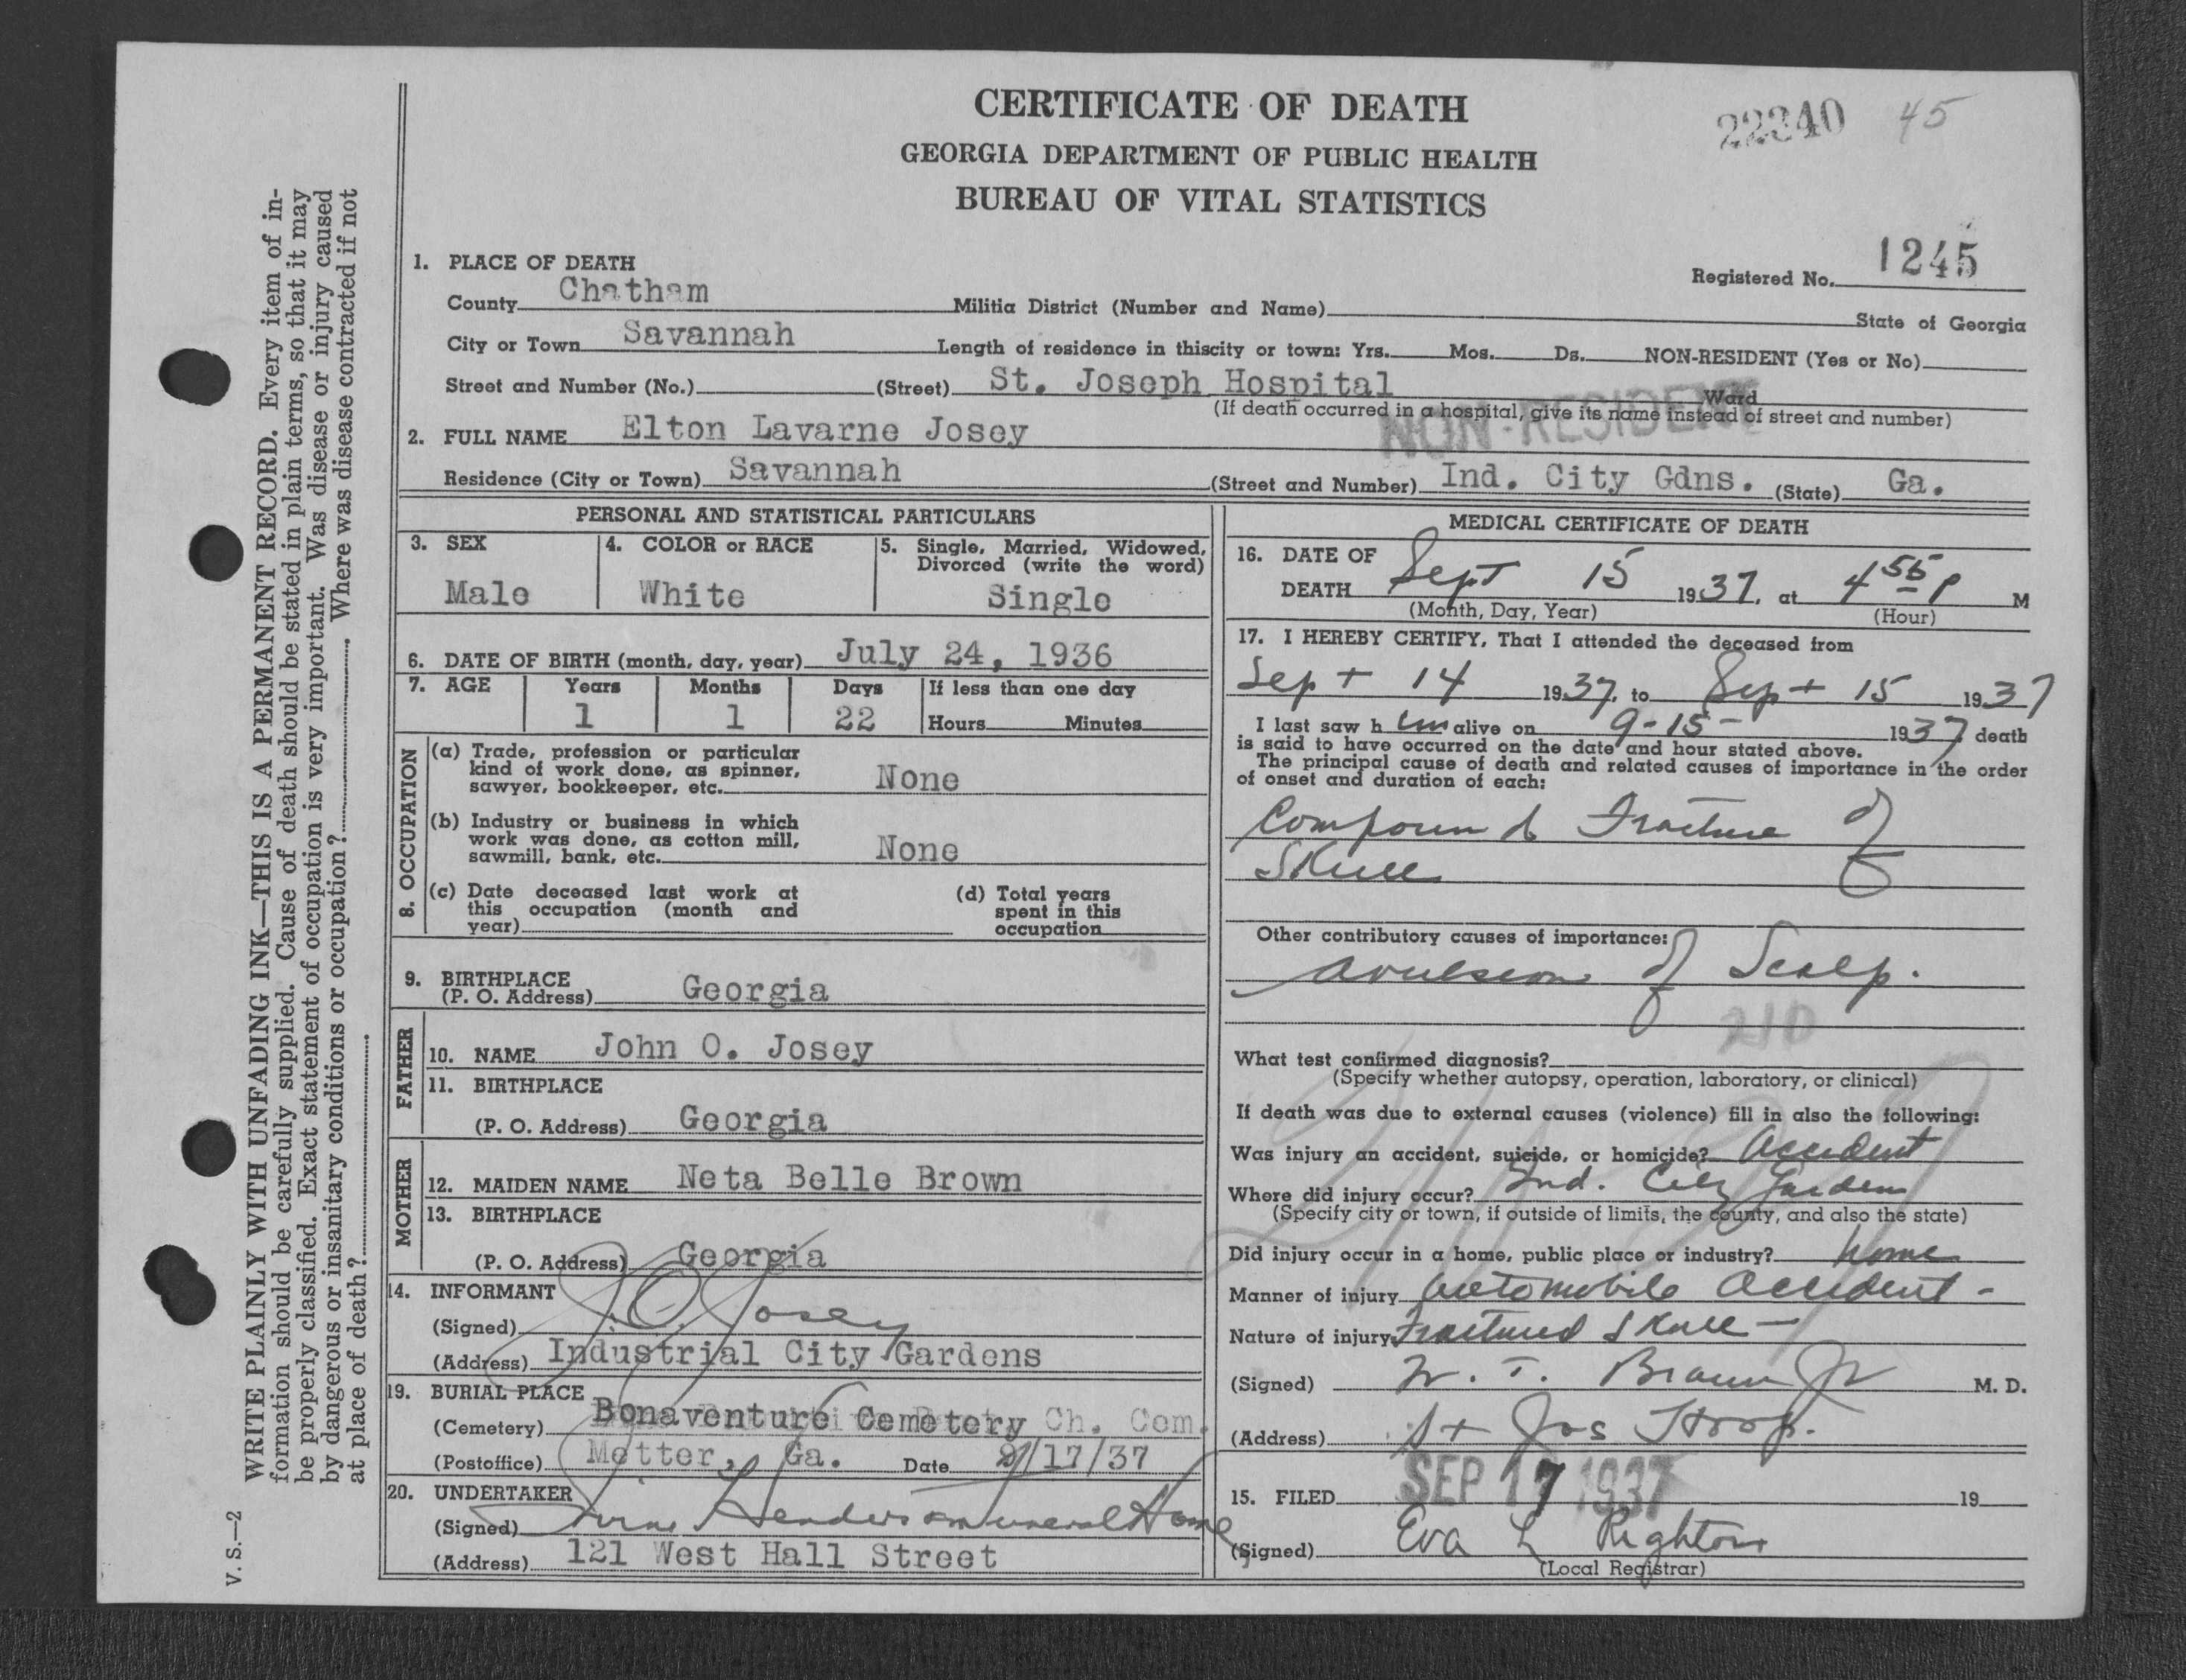 CERTIFICATE OF DEATH
GEORGIA DEPARTMENT OF PUBLIC HEALTH
BUREAU OF VITAL STATISTICS
22340 45
Registered No. 1245
1. PLACE OF DEATH
County Chatham Militia District (Number and Name) State of Georgia
City or Town Savannah Length of residence in this city or town: Yrs. Mos. Ds. NON-RESIDENT (Yes or No)
Street and Number (No.) (Street) St. Joseph Hospital Ward
(If death occurred in a hospital, give its name instead of street and number)
NON-RESIDENT
2. FULL NAME Elton Lavarne Josey
Residence (City or Town) Savannah (Street and Number) Ind. City Gdns. (State) Ga.
PERSONAL AND STATISTICAL PARTICULARS
3. SEX Male
4. COLOR or RACE White
5. Single, Married, Widowed, Divorced (write the word) Single
6. DATE OF BIRTH (month, day, year) July 24, 1936
7. AGE Years Months Days If less than one day
1 1 22 Hours Minutes
8. OCCUPATION
(a) Trade, profession or particular
kind of work done, as spinner,
sawyer, bookkeeper, etc. None
(b) Industry or business in which
work was done, as cotton mill,
sawmill, bank, etc. None
(c) Date deceased last work at
this occupation (month and
year)
(d) Total years
spent in this
occupation
9. BIRTHPLACE
(P. O. Address) Georgia
FATHER
10. NAME John O. Josey
11. BIRTHPLACE
(P. O. Address) Georgia
MOTHER
12. MAIDEN NAME Neta Belle Brown
13. BIRTHPLACE
(P. O. Address) Georgia
14. INFORMANT
(Signed) J. O. Josey
(Address) Industrial City Gardens
19. BURIAL PLACE
(Cemetery) Bonaventure Cemetery Ch. Cem.
(Postoffice) Metter, Ga. Date 9/17/37
20. UNDERTAKER
(Signed) Henderson Funeral Home
(Address) 121 West Hall Street
MEDICAL CERTIFICATE OF DEATH
16. DATE OF
DEATH Sept 15 1937, at 4 55 P M
(Month, Day, Year) (Hour)
17. I HEREBY CERTIFY, That I attended the deceased from
Sept 14 1937, to Sept 15 1937
I last saw him alive on 9-15- 1937 death
is said to have occurred on the date and hour stated above.
The principal cause of death and related causes of importance in the order
of onset and duration of each:
Compound Fracture of
Skull
Other contributory causes of importance:
avulsion of Scalp.
210
What test confirmed diagnosis?
(Specify whether autopsy, operation, laboratory, or clinical)
If death was due to external causes (violence) fill in also the following:
Was injury an accident, suicide, or homicide? Accident
Where did injury occur? Ind. City Gardens
(Specify city or town, if outside of limits, the county, and also the state)
Did injury occur in a home, public place or industry? home
Manner of injury Automobile Accident -
Nature of injury Fractured Skull -
(Signed) W. T. Brown Jr M. D.
(Address) St Jos Hosp.
15. FILED SEP 17 1937 19
(Signed) Eva L Righton
(Local Registrar)
WRITE PLAINLY WITH UNFADING INK—THIS IS A PERMANENT RECORD. Every item of in-
formation should be carefully supplied. Cause of death should be stated in plain terms, so that it may
be properly classified. Exact statement of occupation is very important. Was disease or injury caused
by dangerous or insanitary conditions or occupation? Where was disease contracted if not
at place of death?
V. S.—2